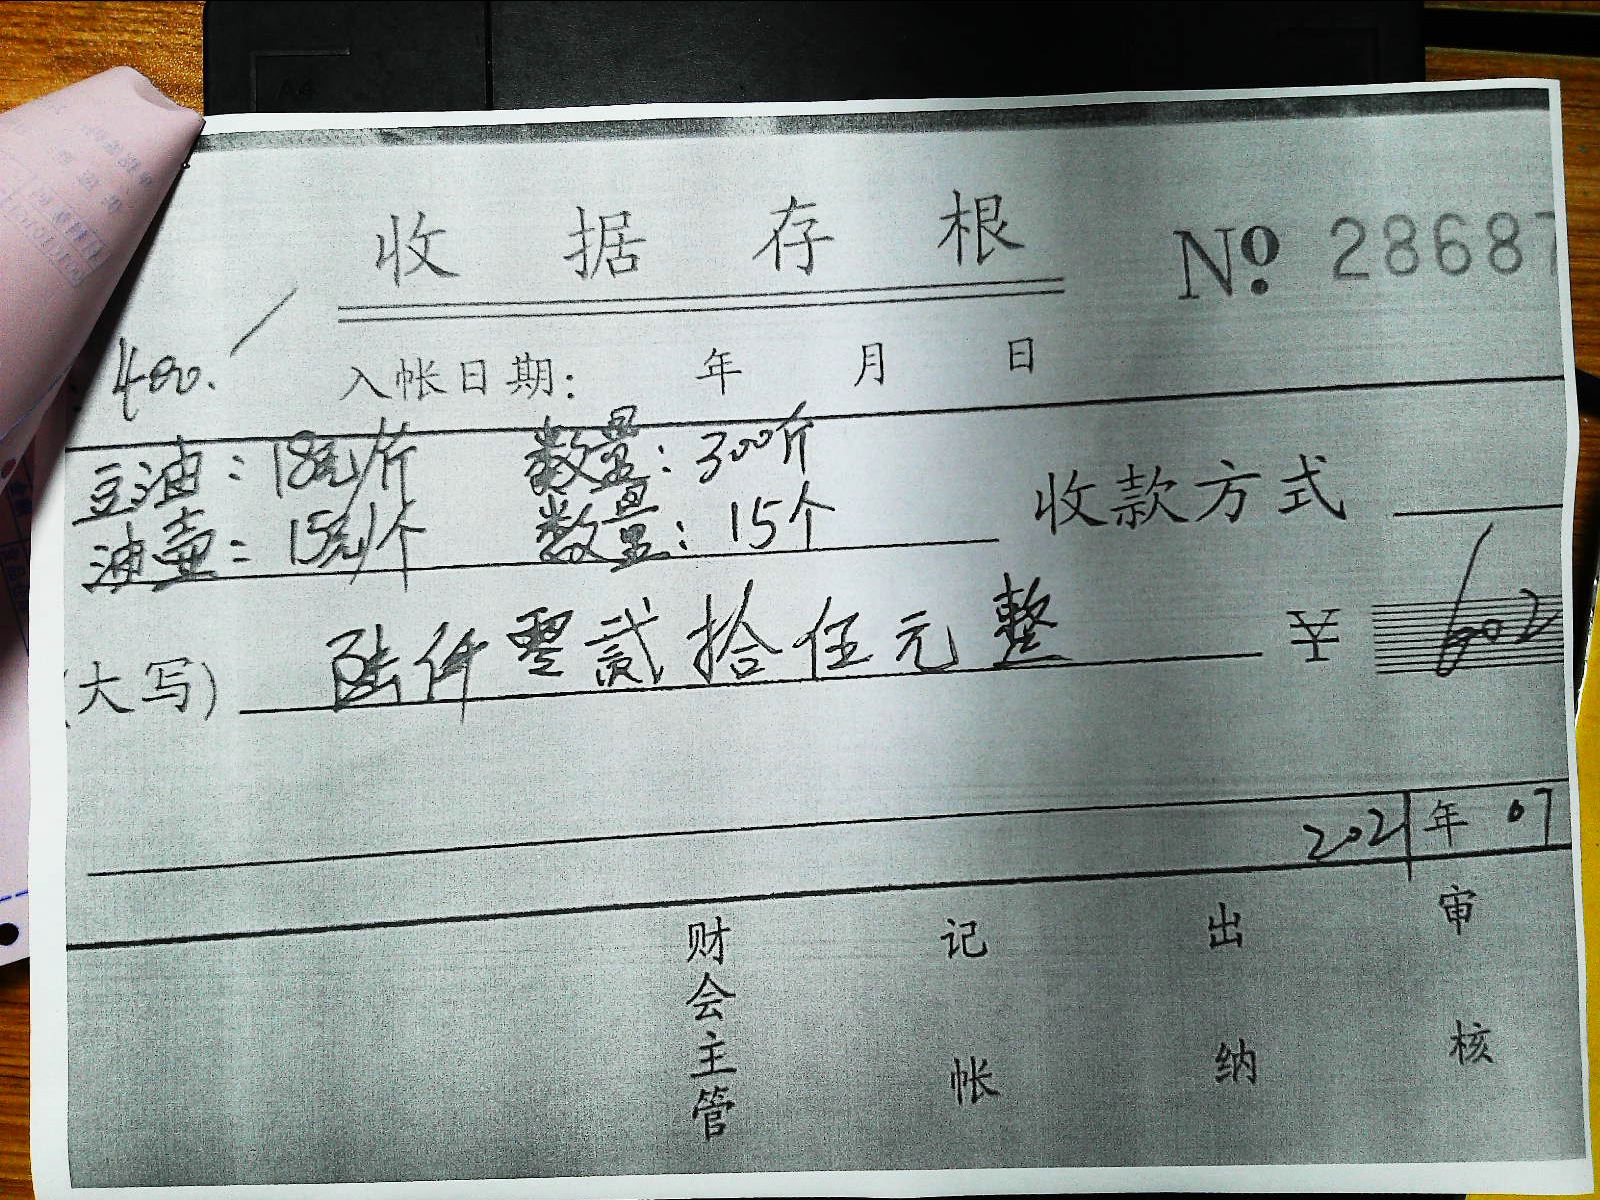 收据存根
No. 28687
400.
入帐日期: 年 月 日
豆油:18元/斤 数量:300斤
油壶:15元/个 数量:15个
收款方式
(大写) 陆仟零贰拾伍元整 ¥ 602
2021年07
财会主管 记帐 出纳 审核